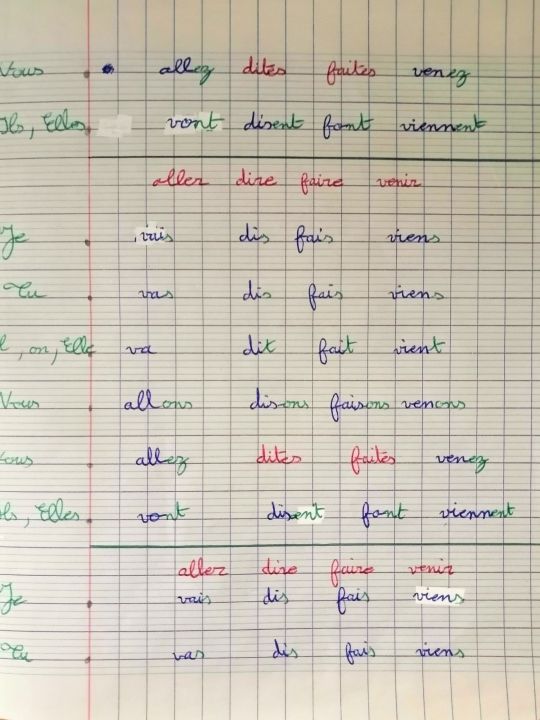 Vous allez dites faites venez
Ils, Elles vont disent font viennent
aller dire faire venir
Je vais dis fais viens
Tu vas dis fais viens
l, on, Elle va dit fait vient
Vous allons disons faisons venons
ous allez dites faites venez
Ils, Elles vont disent font viennent
aller dire faire venir
Je vais dis fais viens
Tu vas dis fais viens